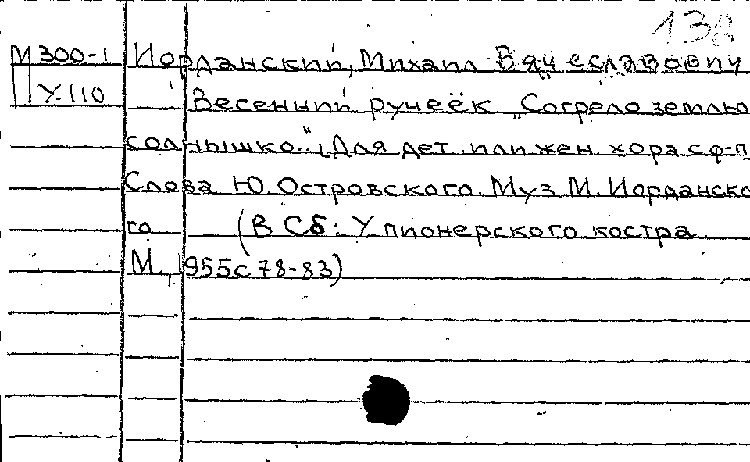 138
М 300-1 Иорданский, Михаил Вячеславович
У-110 Весенний ручеёк „Согрело землю
солнышко..." (Для дет. или жен. хора с ф-п
Слова Ю. Островского. Муз М. Иорданско
го (В Сб: У пионерского костра.
М., 1955 с 78-83)